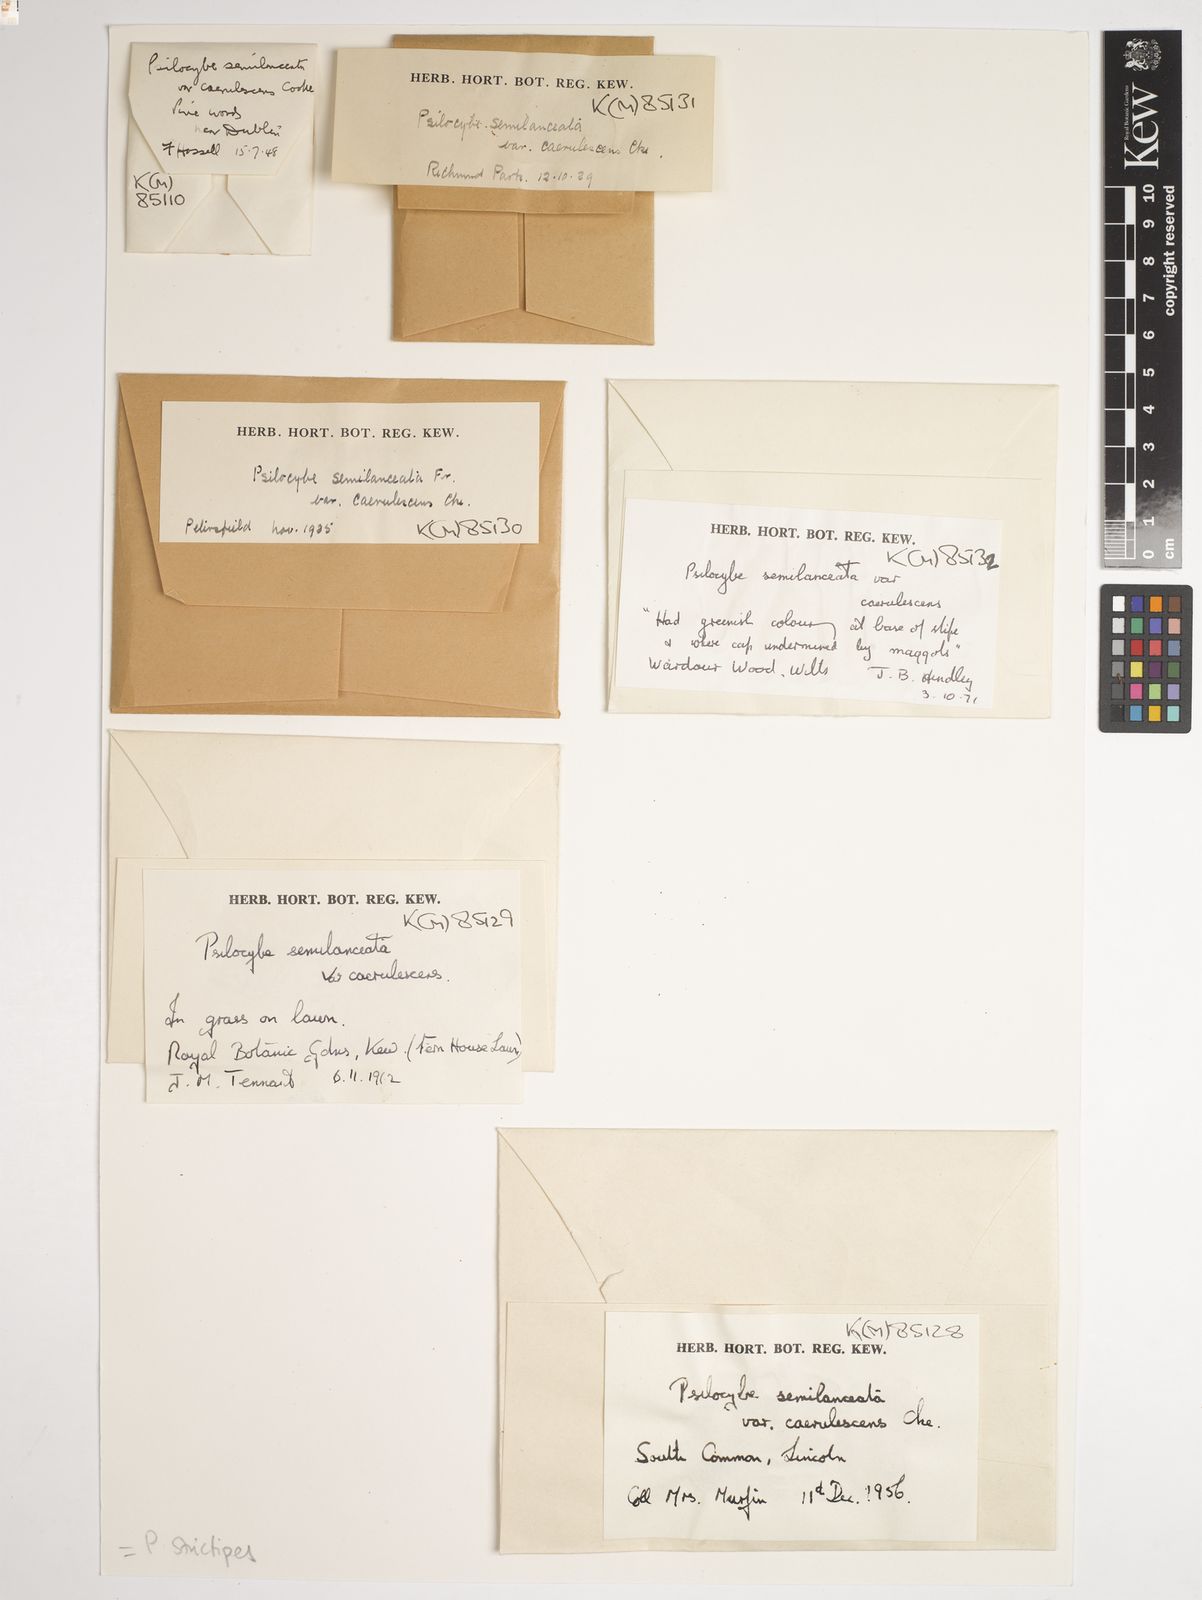 Psilocybe semilanceata
var caerulescens Cooke
Pine woods
near Dublin
15.7.48
K(M)
85110
HERB. HORT. BOT. REG. KEW.
K(M)85131
Psilocybe semilanceata
var. caerulescens Cke.
Richmond Park. 12.10.39
HERB. HORT. BOT. REG. KEW.
Psilocybe semilanceata Fr.
var. caerulescens Cke.
Nov. 1935
K(M)85130
HERB. HORT. BOT. REG. KEW.
K(M)85132
Psilocybe semilanceata var
caerulescens
"Had greenish colour at base of stipe
& where cap undermined by maggots"
Wardour Wood, Wilts J. B. Hindley
3.10.71
HERB. HORT. BOT. REG. KEW.
K(M)85129
Psilocybe semilanceata
var caerulescens.
In grass on lawn.
Royal Botanic Gdns, Kew. (Fern House Lawn)
J. M. Tennant 6.11.1962
K(M)85128
HERB. HORT. BOT. REG. KEW.
Psilocybe semilanceata
var. caerulescens Cke.
South Common, Lincoln
Coll Mrs. Murfin 11th Dec. 1956.
= P. strictipes
Royal Botanic Gardens
Kew
copyright reserved
0 1 2 3 4 5 6 7 8 9 10
cm